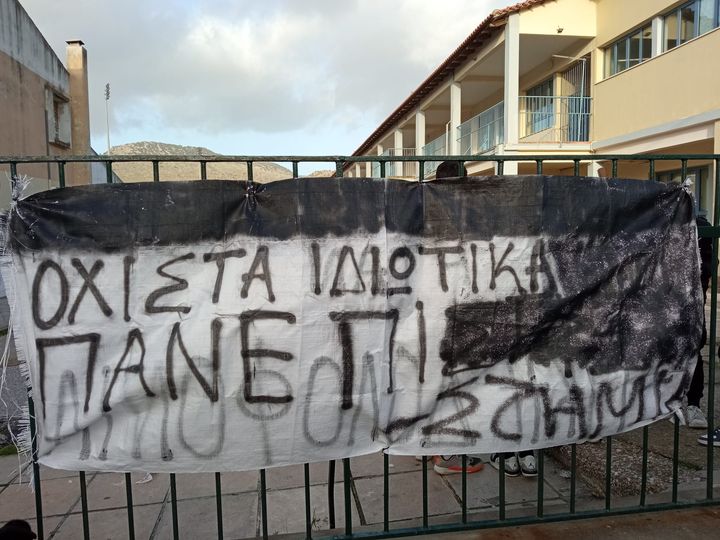 ΟΧΙ ΣΤΑ ΙΔΙΩΤΙΚΑ
ΠΑΝΕΠΙ
-ΣΤΗΜΙ